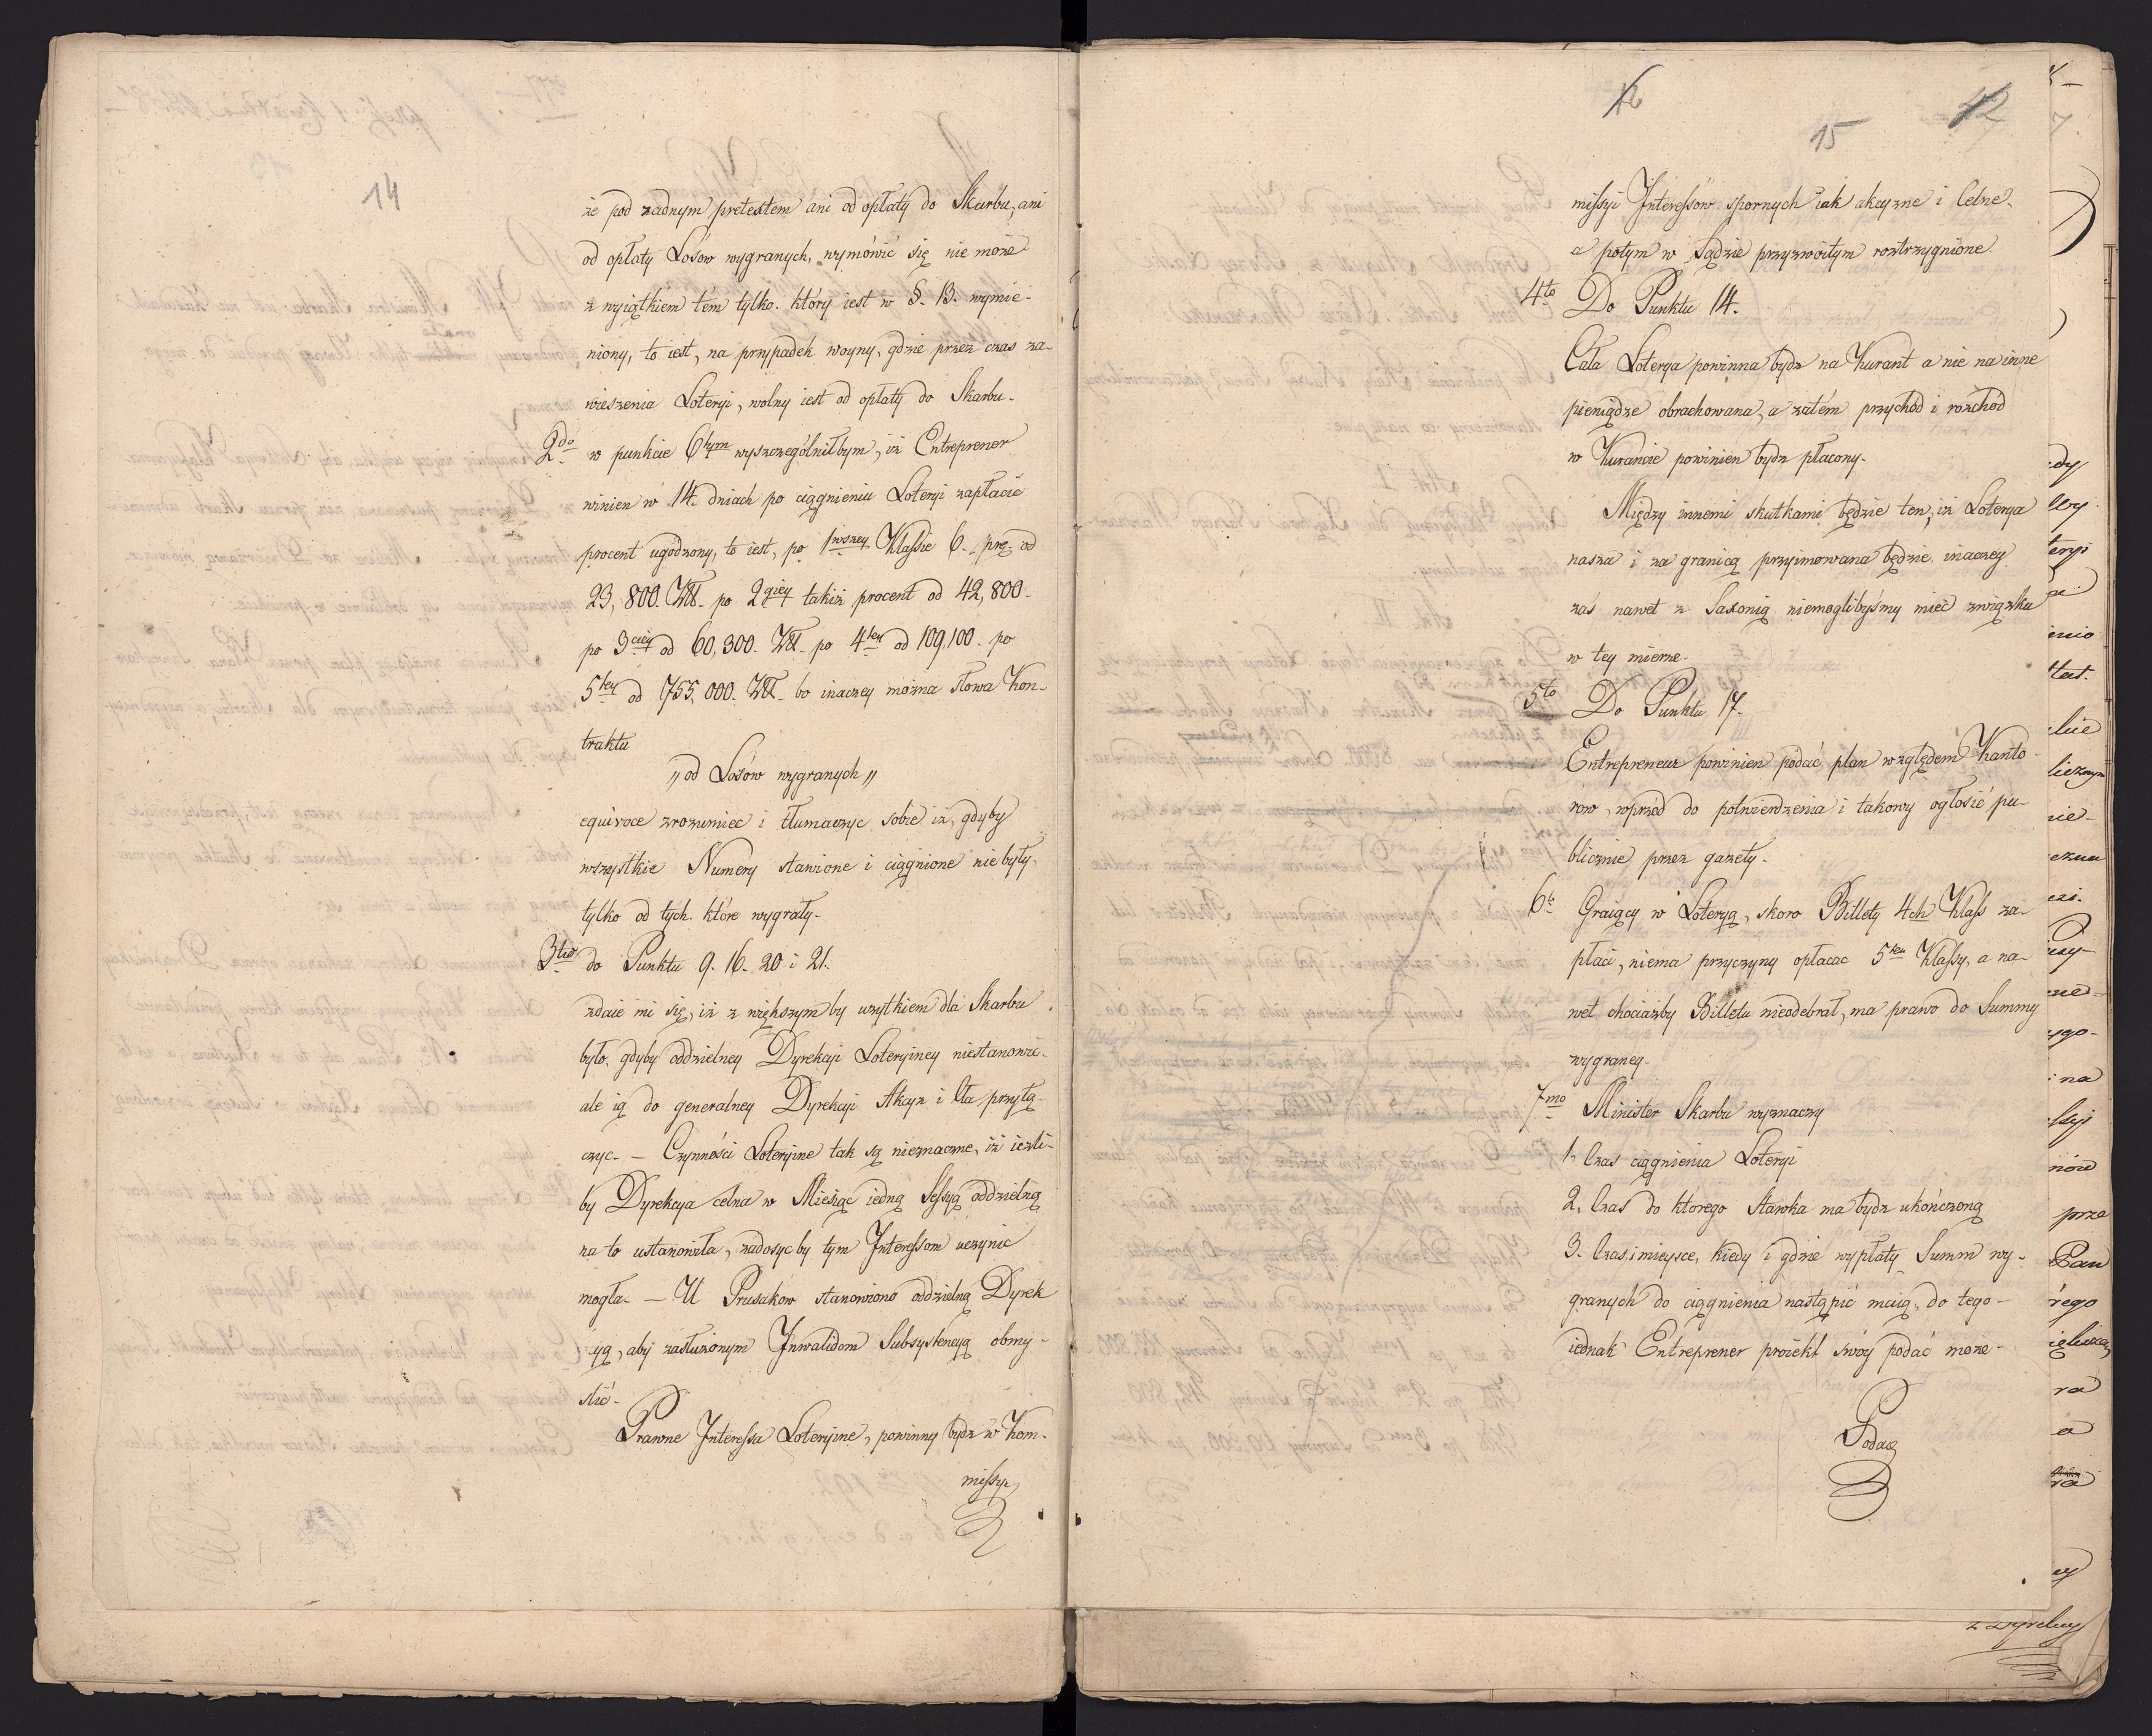 14
że pod żadnym pretextem ani od opłaty do Skarbu, ani
od opłaty Losow wygranych, wymówić się nie może
z wyiątkiem tém tylko. który iest w §. 13. wymie-
niony, to iest, na przypadek woyny, gdzie przez czas za-
wieszenia Loteryi, wolny iest od opłaty do Skarbu.
2do w punkcie 6tym wyszczególniłbym, iż Entreprener
winien w 14. dniach po ciągnieniu Loteryi zapłacić
procent ugodzony, to iest, po 1wszey Klassie 6. prC od
23,800. Złł. po 2giey takiż procent od 42,800.
po 3ciey od 60,300. Złł. po 4tey od 109,100. po
5tey od 755,000. Złł. bo inaczey można słowa Kon-
traktu
„od Losów wygranych„
equivoce zrozumiec i tłumaczyc sobie iż, gdyby
wszystkie Numery stawione i ciągnione nie były,
tylko od tych. które wygrały.
3tio do Punktu 9. 16. 20 i 21.
zdaie mi się, iż z większym by użytkiem dla Skarbu
było, gdyby oddzielney Dyrekcyi Loteryiney niestanowić.
ale ią do generalney Dyrekcyi Akcyz i Cła przyłą-
czyc. — Czynności Loteryine tak są nieznaczne, iż ieżli-
by Dyrekcya celna w Miesiąc iedną Sessyą oddzielną
na to ustanowiła, zadosyc by tym Interessom uczynic
mogła. — U Prusakow stanowiono oddzielną Dyrek
cyą, aby zasłużonym Inwalidom Subsystencyą obmy-
slić.
Prawne Interessa Loteryine, powinny bydz w Kom-
missyi
12
15
missyi Interessow spornych iak akcyzne i Celne.
a potym w Sądzie przyzwoitym roztrzygnione.
4to Do Punktu 14.
Cała Loterya powinna bydz na Kurant a nie na inne
pieniądze obrachowana, a zatém przychod i rozchod
w Kurancie powinien bydz płacony.
Między innemi skutkami będzie ten, iż Loterya
nasza i za granicą przyimowana będzie. inaczey
zaś nawet z Saxonią niemoglibyśmy mieć związku
w tey mierze.
5to Do Punktu 17.
Entrepreneur powinien podać plan względem Kanto-
row, wprzód do potwierdzenia i takowy ogłosić pu-
blicznie przez gazety.
6to Graiący w Loteryą, skoro Billety 4ch Klass za-
płaci, niema przyczyny opłacac 5tey Klassy, a na-
wet chociażby Billetu nieodebrał, ma prawo do Summy
wygraney.
7mo Minister Skarbu wyznaczy
1. Czas ciągnienia Loteryi
2. Czas do ktorego Stawka ma bydz ukończoną
3. Czas i mieysce, kiedy i gdzie wypłaty Summ wy-
granych do ciągnienia nastąpić maią, do tego
iednak Entreprener proiekt swóy podać może.
Podaę